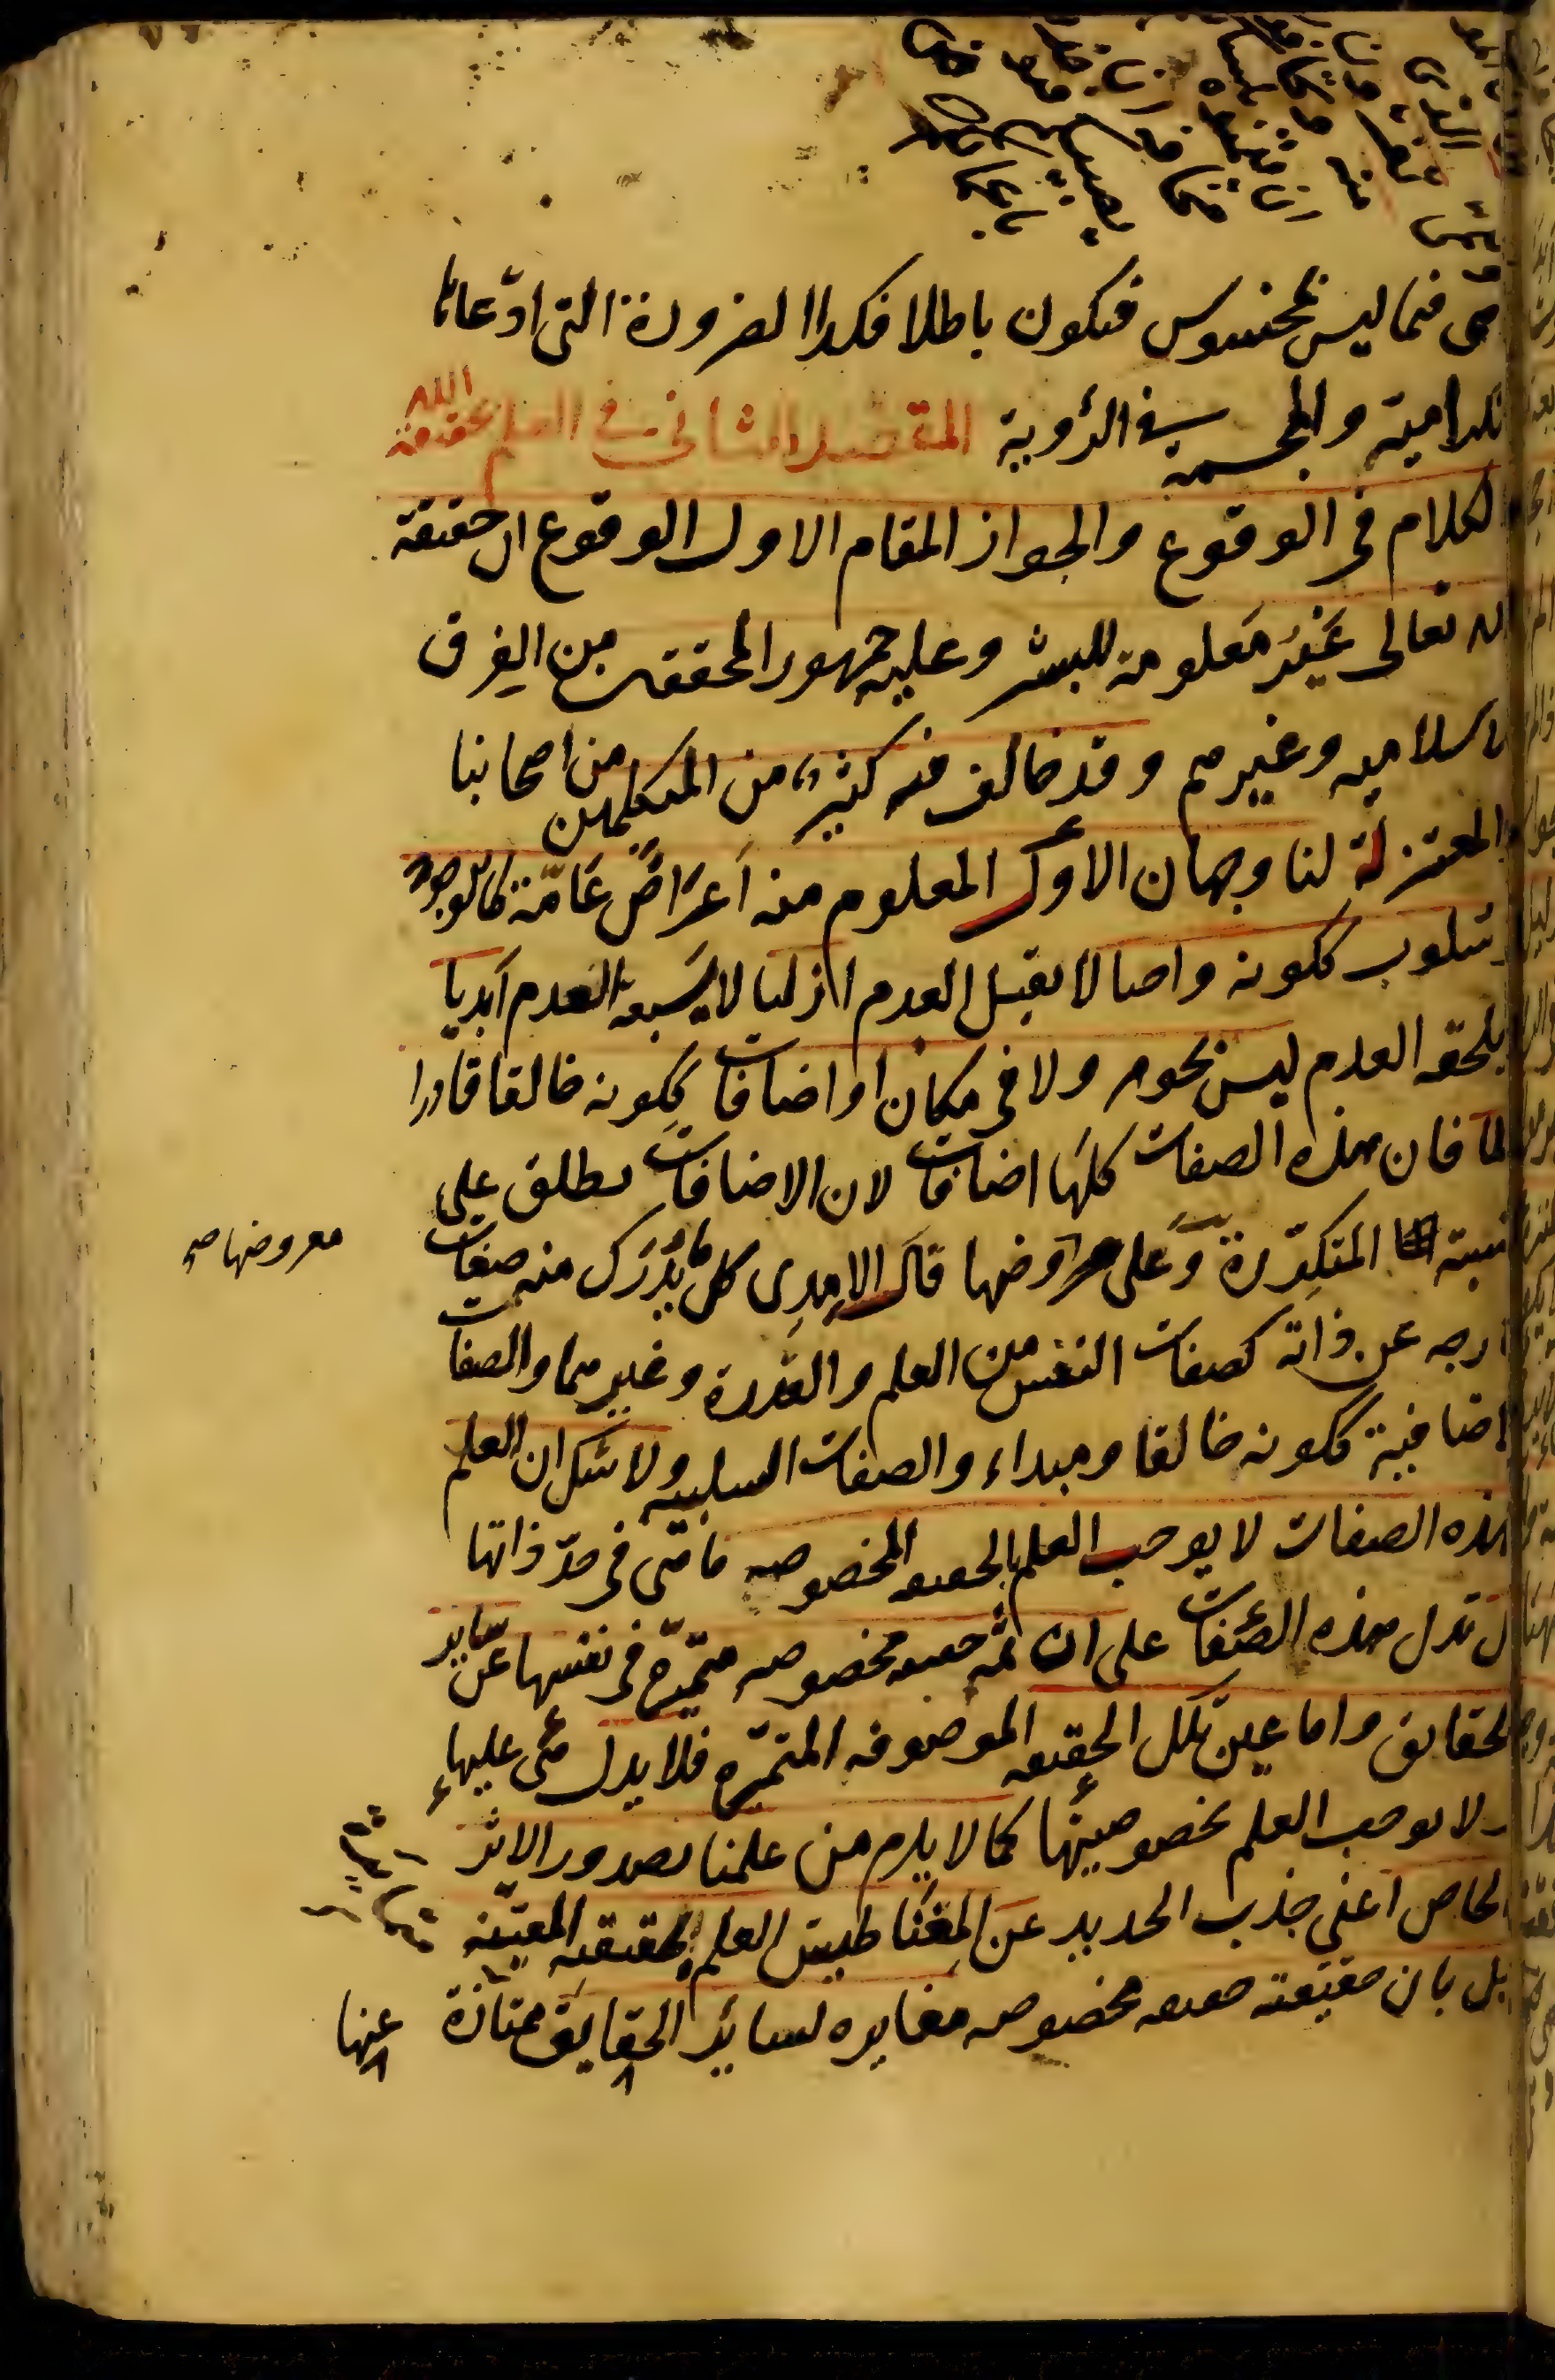 فيما ليس بمحسوس فيكون باطلا فكذا الضرورة التى ادّعاها
الكرامية والمجسمة فى الرؤية المقصد الثانى فى العلم بحقيقة الله
الكلام فى الوقوع والجواز المقام الاول الوقوع ان حقيقة
الله تعالى غَيْرُ مَعلومة للبشر وعليه جمهور المحققين من الفِرق
الاسلاميه وغيرهم وقد خالف فيه كثيرٌ من المتكلمين من اصحابنا
والمعتزلة لنا وجهان الأوّل المعلوم منه اَعرَاضٌ عَامّة كالوجود
وسلوب ككونه واجبا لا يقبل العدم ازليا لا يَسبقه العدم اَبديا
يلحقه العدم ليس بجوهر ولا فى مكان او اضافات ككونه خالقا قادرا
عالما فان هذه الصفات كلهَا اضافات لان الاضافات يطلق على
النسبة المتكرّرة وَعلى معروضها قال الامِدِى كل ما يُدْرَك منه صفات
معروضها صح
خارجه عن ذاته كصفات النفس من العلم والقدرة وغيرهما والصفات
الاضافية ككونه خالقا ومبداء والصفات السلبيه ولا شك ان العلم
بهذه الصفات لا يوجب العلم بالحقيقه المخصوصه ما هى فى حدّ ذاتها
بل تدل هذه الصفات على ان ثمه حقيقه مخصوصه متميّزة فى نفسها عن سَاير
الحقايق واما عين تلك الحقيقه الموصوفه المتميّزه فلا يدل هى عليهَا
ولا يوجب العلم بخصوصيتها كما لا يلزم من علمنا بصدور الاثر
الخاص اعنى جذب الحديد عن المِغنَاطيس العلم بحقيقتِه المعيّنه
بل بان حقيقته حقيقه مخصوصه مغايره لسائر الحقايق ممتازة عنها